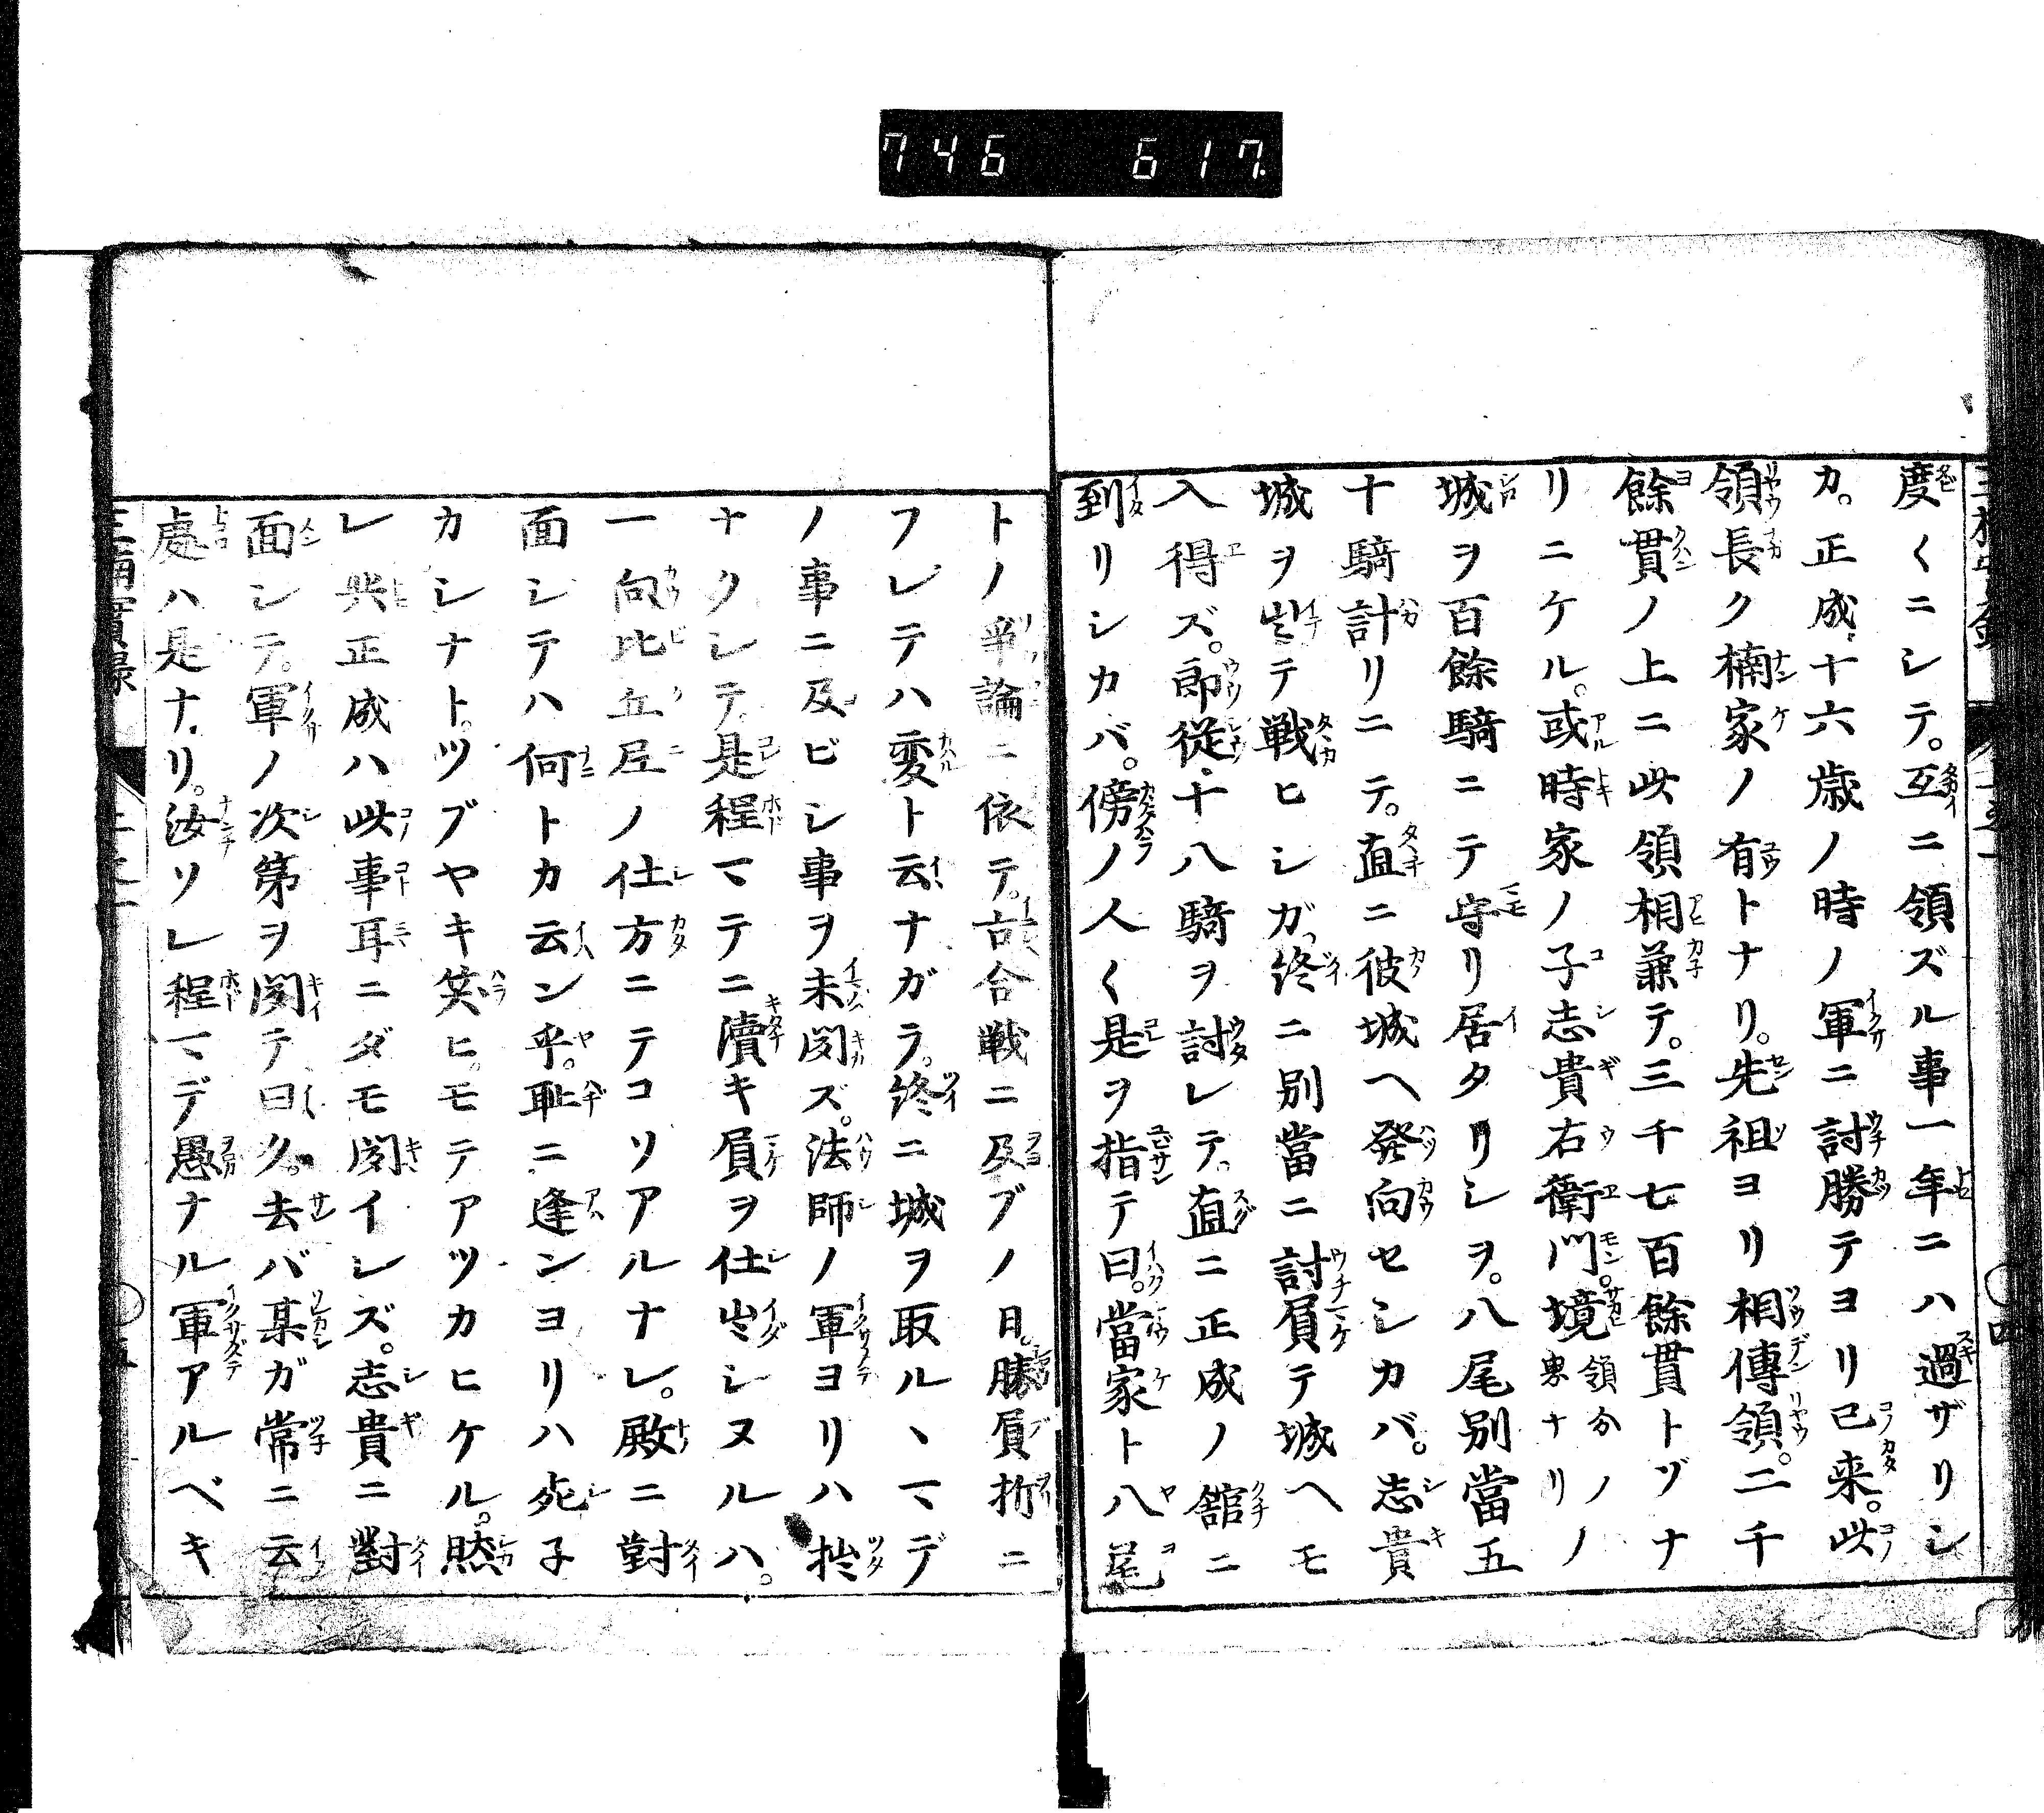 746 617
度〱ニシテ。互ニ領ズル事一年ニハ過ザリシ
カ。正成十六歳ノ時ノ軍ニ討勝テヨリ已来。此
領長ク楠家ノ有トナリ。先祖ヨリ相傳領。二千
餘貫ノ上ニ此領相兼テ。三千七百餘貫トヅナ
リニケル。或時家ノ子志貴右衛門。境東領分ノナリノ
城ヲ百餘騎ニテ守リ居タリシヲ。八尾別當五
十騎計リニテ。直ニ彼城ヘ發向セシカバ。志貴
城ヲ出テ戦ヒシガ。終ニ別當ニ討負テ城ヘモ
入得ズ。郎従十八騎ヲ討レテ。直ニ正成ノ舘ニ
到リシカバ。傍ノ人〱是ヲ指テ曰。當家ト八尾
トノ争論ニ依テ。合戦ニ及ブノ日。勝負折ニ
フレテハ変ト云ナガラ。終ニ城ヲ取ルヽマデ
ノ事ニ及ビシ事ヲ未聞ズ。法師ノ軍ヨリハ拙
ナクシテ。是程マテニ瀆キ負ヲ仕出シヌルハ。
一向比丘尼ノ仕方ニテコソアルナレ。殿ニ對
面シテハ何トカ云ン乎。耻ニ逢ンヨリハ死子
カシナト。ツブヤキ笑ヒ。モテアツカヒケル。然
レ𪜈正成ハ此事耳ニダモ聞イレズ。志貴ニ對
面シテ。軍ノ次第ヲ聞テ曰ク。去バ某ガ常ニ云
處ハ是ナリ。汝ソレ程マデ愚ナル軍アルベキ